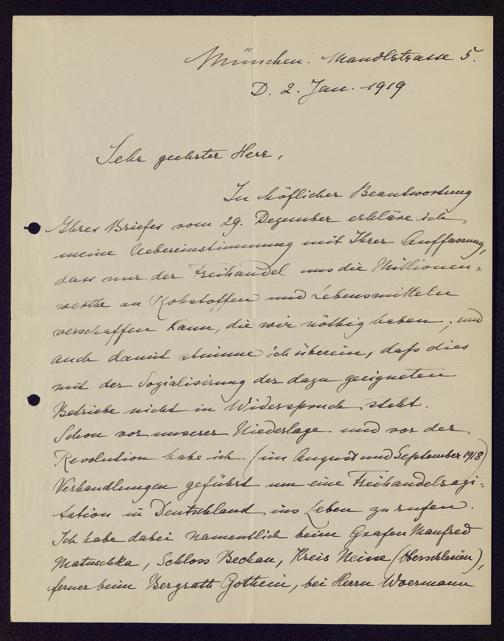 München. Mandlstrasse 5.
D. 2. Jan. 1919
Sehr geehrter Herr,
In höflicher Beantwortung
Ihres Briefes vom 29. Dezember erkläre ich
meine Uebereinstimmung mit Ihrer Auffassung,
dass nur der Freihandel uns die Millionen-
werthe an Rohstoffen und Lebensmitteln
verschaffen kann, die wir nöthig haben; und
auch damit stimme ich überein, dass dies
mit der Sozialisirung der dazu geeigneten
Betriebe nicht in Widerspruch steht.
Schon vor unserer Niederlage und vor der
Revolution habe ich (im August und September 1918)
Verhandlungen geführt um eine Freihandelsagi-
tation in Deutschland ins Leben zu rufen.
Ich habe dabei namentlich beim Grafen Manfred
Matuschka, Schloss Bechau, Kreis Neisse (Oberschlesien),
ferner beim Bergrath Gothein, bei Herrn Woermann